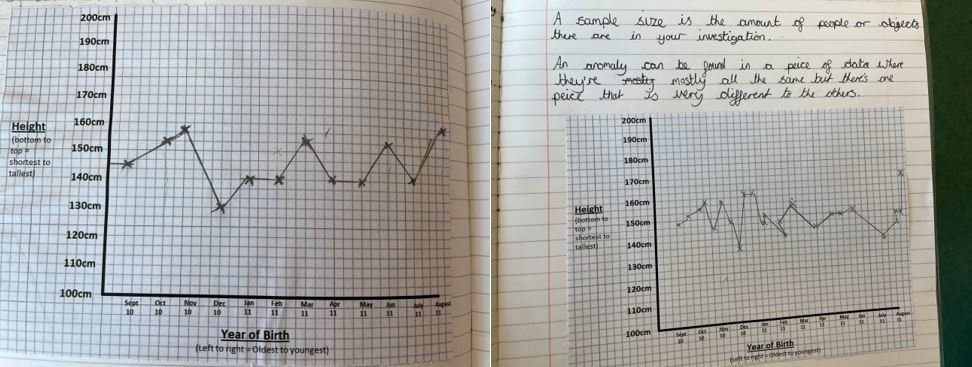 200cm
190cm
180cm
170cm
160cm
150cm
140cm
130cm
120cm
110cm
100cm
Height
(bottom to
top =
shortest to
tallest)
Sept Oct Nov Dec Jan Feb Mar Apr May Jun July August
10 10 10 10 11 11 11 11 11 11 11 11
Year of Birth
(Left to right = Oldest to youngest)
A sample size is the amount of people or objects
there are in your investigation.
An anomaly can be found in a peice of data where
they're mostly all the same but there's one
peice that is very different to the others.
200cm
190cm
180cm
170cm
160cm
150cm
140cm
130cm
120cm
110cm
100cm
Height
(bottom to
top =
shortest to
tallest)
Sept Oct Nov Dec Jan Feb Mar Apr May Jun July August
10 10 10 10 11 11 11 11 11 11 11 11
Year of Birth
(Left to right = Oldest to youngest)